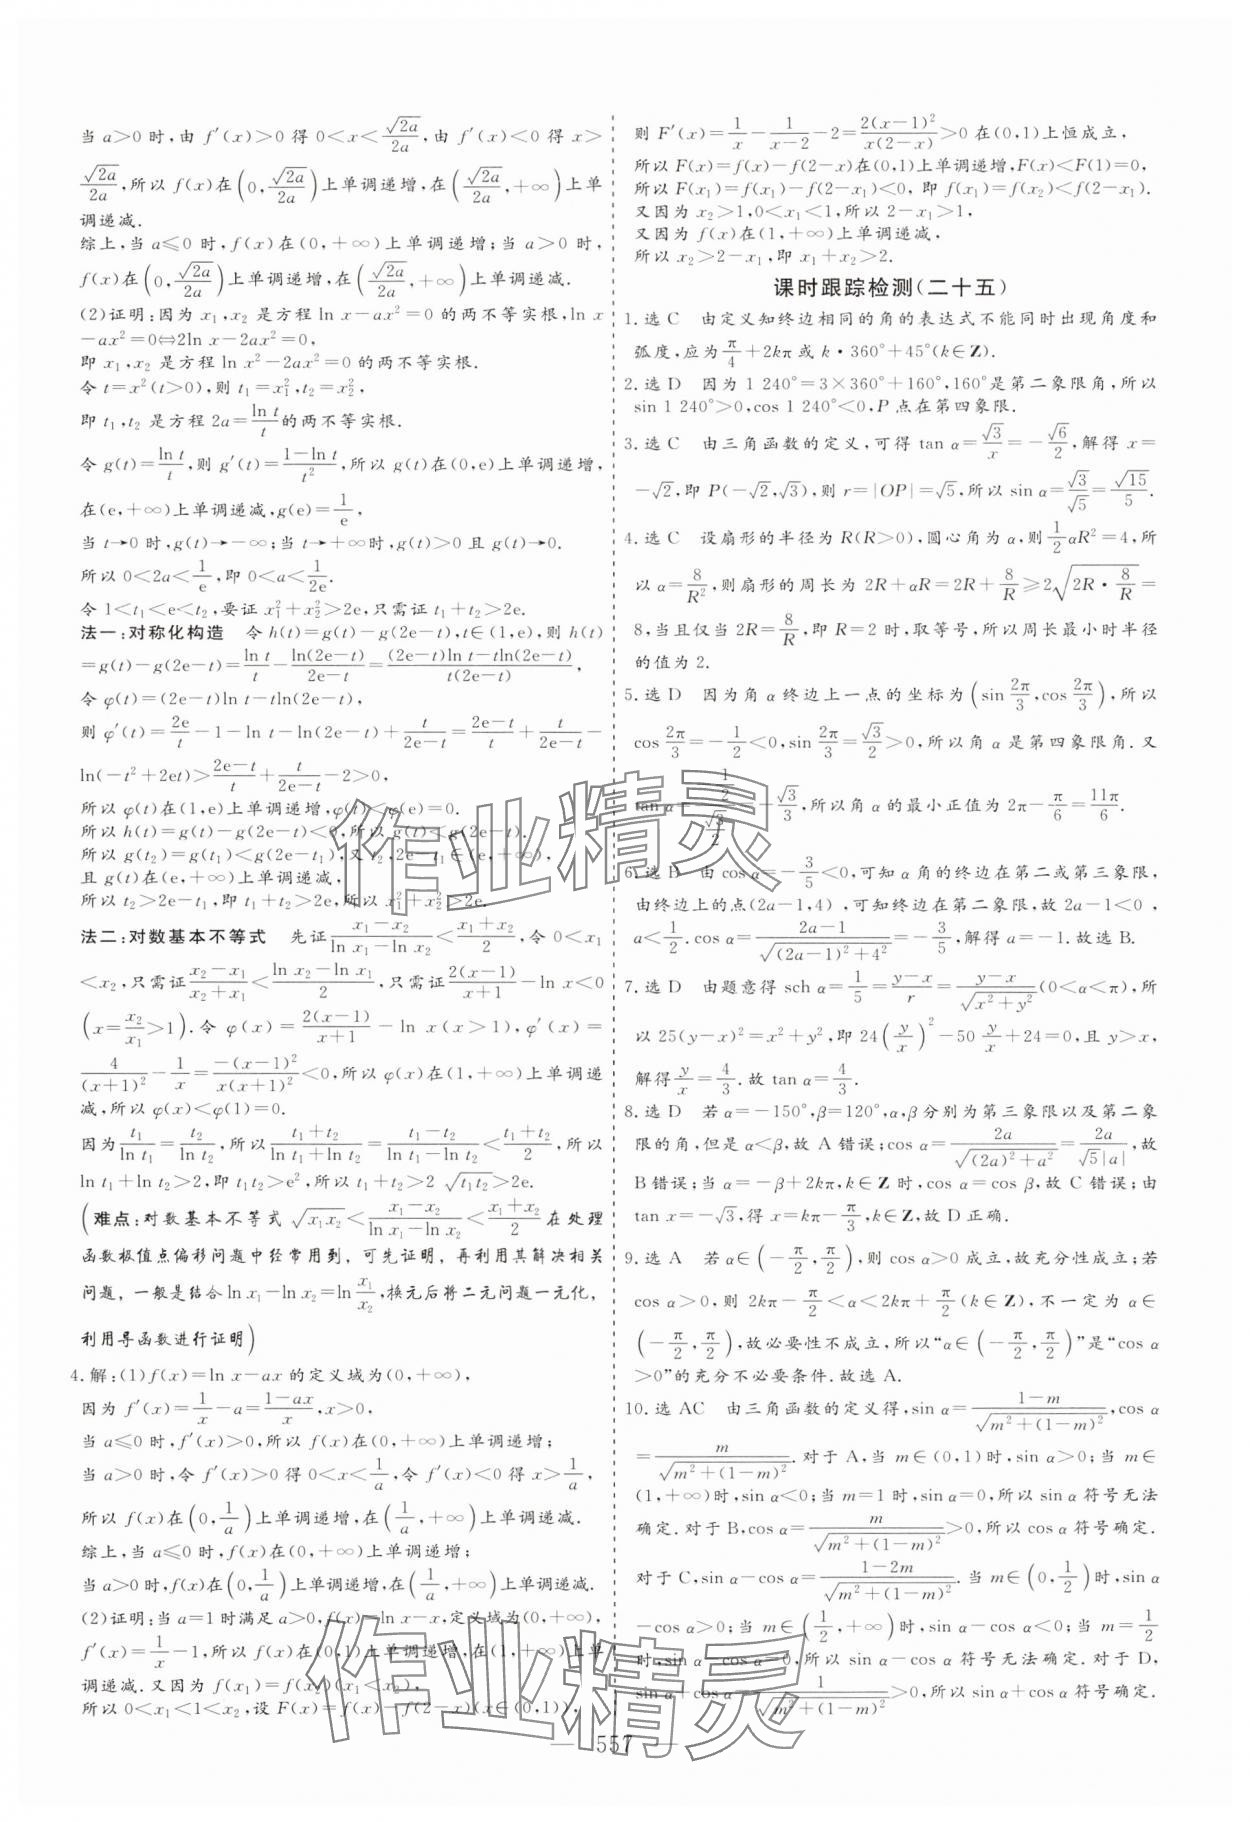 当 a>0 时,由 f′(x)>0 得 0<x<√(2a)/2a,由 f′(x)<0 得 x>
√(2a)/2a,所以 f(x)在(0,√(2a)/2a)上单调递增,在(√(2a)/2a,+∞)上单
调递减.
综上,当 a≤0 时,f(x)在(0,+∞)上单调递增;当 a>0 时,
f(x)在(0,√(2a)/2a)上单调递增,在(√(2a)/2a,+∞)上单调递减.
(2)证明:因为 x₁,x₂ 是方程 ln x-ax²=0 的两不等实根,ln x
-ax²=0⇔2ln x-2ax²=0,
即 x₁,x₂ 是方程 ln x²-2ax²=0 的两不等实根.
令 t=x²(t>0),则 t₁=x₁²,t₂=x₂²,
即 t₁,t₂ 是方程 2a=ln t/t 的两不等实根.
令 g(t)=ln t/t,则 g′(t)=(1-ln t)/t²,所以 g(t)在(0,e)上单调递增,
在(e,+∞)上单调递减,g(e)=1/e,
当 t→0 时,g(t)→-∞;当 t→+∞时,g(t)>0 且 g(t)→0.
所以 0<2a<1/e,即 0<a<1/2e.
令 1<t₁<e<t₂,要证 x₁²+x₂²>2e,只需证 t₁+t₂>2e.
法一:对称化构造 令 h(t)=g(t)-g(2e-t),t∈(1,e),则 h(t)
=g(t)-g(2e-t)=ln t/t-ln(2e-t)/(2e-t)=((2e-t)ln t-tln(2e-t))/(t(2e-t)),
令 φ(t)=(2e-t)ln t-tln(2e-t),
则 φ′(t)=2e/t-1-ln t-ln(2e-t)+t/(2e-t)=(2e-t)/t+t/(2e-t)-
ln(-t²+2et)>(2e-t)/t+t/(2e-t)-2>0,
所以 φ(t)在(1,e)上单调递增,φ(t)<φ(e)=0.
所以 h(t)=g(t)-g(2e-t)<0,所以 g(t)<g(2e-t).
所以 g(t₂)=g(t₁)<g(2e-t₁),又 t₂,2e-t₁∈(e,+∞),
且 g(t)在(e,+∞)上单调递减,
所以 t₂>2e-t₁,即 t₁+t₂>2e,所以 x₁²+x₂²>2e.
法二:对数基本不等式 先证(x₁-x₂)/(ln x₁-ln x₂)<(x₁+x₂)/2,令 0<x₁
<x₂,只需证(x₂-x₁)/(x₂+x₁)<(ln x₂-ln x₁)/2,只需证2(x-1)/(x+1)-ln x<0
(x=x₂/x₁>1).令 φ(x)=2(x-1)/(x+1)-ln x(x>1),φ′(x)=
4/(x+1)²-1/x=-(x-1)²/(x(x+1)²)<0,所以 φ(x)在(1,+∞)上单调递
减,所以 φ(x)<φ(1)=0.
因为t₁/ln t₁=t₂/ln t₂,所以(t₁+t₂)/(ln t₁+ln t₂)=(t₁-t₂)/(ln t₁-ln t₂)<(t₁+t₂)/2,所以
ln t₁+ln t₂>2,即 t₁t₂>e²,所以 t₁+t₂>2√(t₁t₂)>2e.
(难点:对数基本不等式 √(x₁x₂)<(x₁-x₂)/(ln x₁-ln x₂)<(x₁+x₂)/2在处理
函数极值点偏移问题中经常用到,可先证明,再利用其解决相关
问题,一般是结合 ln x₁-ln x₂=ln x₁/x₂,换元后将二元问题一元化,
利用导函数进行证明)
4.解:(1)f(x)=ln x-ax 的定义域为(0,+∞),
因为 f′(x)=1/x-a=(1-ax)/x,x>0,
当 a≤0 时,f′(x)>0,所以 f(x)在(0,+∞)上单调递增;
当 a>0 时,令 f′(x)>0 得 0<x<1/a,令 f′(x)<0 得 x>1/a,
所以 f(x)在(0,1/a)上单调递增,在(1/a,+∞)上单调递减.
综上,当 a≤0 时,f(x)在(0,+∞)上单调递增;
当 a>0 时,f(x)在(0,1/a)上单调递增,在(1/a,+∞)上单调递减.
(2)证明:当 a=1 时满足 a>0,f(x)=ln x-x,定义域为(0,+∞),
f′(x)=1/x-1,所以 f(x)在(0,1)上单调递增,在(1,+∞)上单调
递减.又因为 f(x₁)=f(x₂)(x₁<x₂),
所以 0<x₁<1<x₂,设 F(x)=f(x)-f(2-x)(x∈(0,1)),
则 F′(x)=1/x-1/(x-2)-2=2(x-1)²/(x(2-x))>0 在(0,1)上恒成立,
所以 F(x)=f(x)-f(2-x)在(0,1)上单调递增,F(x)<F(1)=0,
所以 F(x₁)=f(x₁)-f(2-x₁)<0,即 f(x₁)=f(x₂)<f(2-x₁).
又因为 x₂>1,0<x₁<1,所以 2-x₁>1,
又因为 f(x)在(1,+∞)上单调递减,
所以 x₂>2-x₁,即 x₁+x₂>2.
课时跟踪检测(二十五)
1.选 C 由定义知终边相同的角的表达式不能同时出现角度和
弧度,应为π/4+2kπ 或 k·360°+45°(k∈Z).
2.选 D 因为 1 240°=3×360°+160°,160°是第二象限角,所以
sin 1 240°>0,cos 1 240°<0,P 点在第四象限.
3.选 C 由三角函数的定义,可得 tan α=√3/x=-√6/2,解得 x=
-√2,即 P(-√2,√3),则 r=|OP|=√5,所以 sin α=√3/√5=√15/5.
4.选 C 设扇形的半径为 R(R>0),圆心角为 α,则1/2αR²=4,所
以 α=8/R²,则扇形的周长为 2R+αR=2R+8/R≥2√(2R·8/R)=
8,当且仅当 2R=8/R,即 R=2 时,取等号,所以周长最小时半径
的值为 2.
5.选 D 因为角 α 终边上一点的坐标为(sin 2π/3,cos 2π/3),所以
cos 2π/3=-1/2<0,sin 2π/3=√3/2>0,所以角 α 是第四象限角.又
tan α=-(1/2)/(√3/2)=-√3/3,所以角 α 的最小正值为 2π-π/6=11π/6.
6.选 D 由 cos α=-3/5<0,可知 α 角的终边在第二或第三象限,
由终边上的点(2a-1,4),可知终边在第二象限,故 2a-1<0,
a<1/2.cos α=(2a-1)/√((2a-1)²+4²)=-3/5,解得 a=-1.故选 B.
7.选 D 由题意得 sch α=1/5=(y-x)/r=(y-x)/√(x²+y²)(0<α<π),所
以 25(y-x)²=x²+y²,即 24(y/x)²-50 y/x+24=0,且 y>x,
解得y/x=4/3.故 tan α=4/3.
8.选 D 若 α=-150°,β=120°,α,β分别为第三象限以及第二象
限的角,但是 α<β,故 A 错误;cos α=2a/√((2a)²+a²)=2a/(√5|a|),故
B 错误;当 α=-β+2kπ,k∈Z 时,cos α=cos β,故 C 错误;由
tan x=-√3,得 x=kπ-π/3,k∈Z,故 D 正确.
9.选 A 若 α∈(-π/2,π/2),则 cos α>0 成立,故充分性成立;若
cos α>0,则 2kπ-π/2<α<2kπ+π/2(k∈Z),不一定为 α∈
(-π/2,π/2),故必要性不成立,所以“α∈(-π/2,π/2)”是“cos α
>0”的充分不必要条件.故选 A.
10.选 AC 由三角函数的定义得,sin α=(1-m)/√(m²+(1-m)²),cos α
=m/√(m²+(1-m)²).对于 A,当 m∈(0,1)时,sin α>0;当 m∈
(1,+∞)时,sin α<0;当 m=1 时,sin α=0,所以 sin α 符号无法
确定.对于 B,cos α=m/√(m²+(1-m)²)>0,所以 cos α 符号确定.
对于 C,sin α-cos α=(1-2m)/√(m²+(1-m)²).当 m∈(0,1/2)时,sin α
-cos α>0;当 m∈(1/2,+∞)时,sin α-cos α<0;当 m=1/2
时,sin α-cos α=0,所以 sin α-cos α 符号无法确定.对于 D,
sin α+cos α=1/√(m²+(1-m)²)>0,所以 sin α+cos α 符号确定.
557
作业精灵
作业精灵